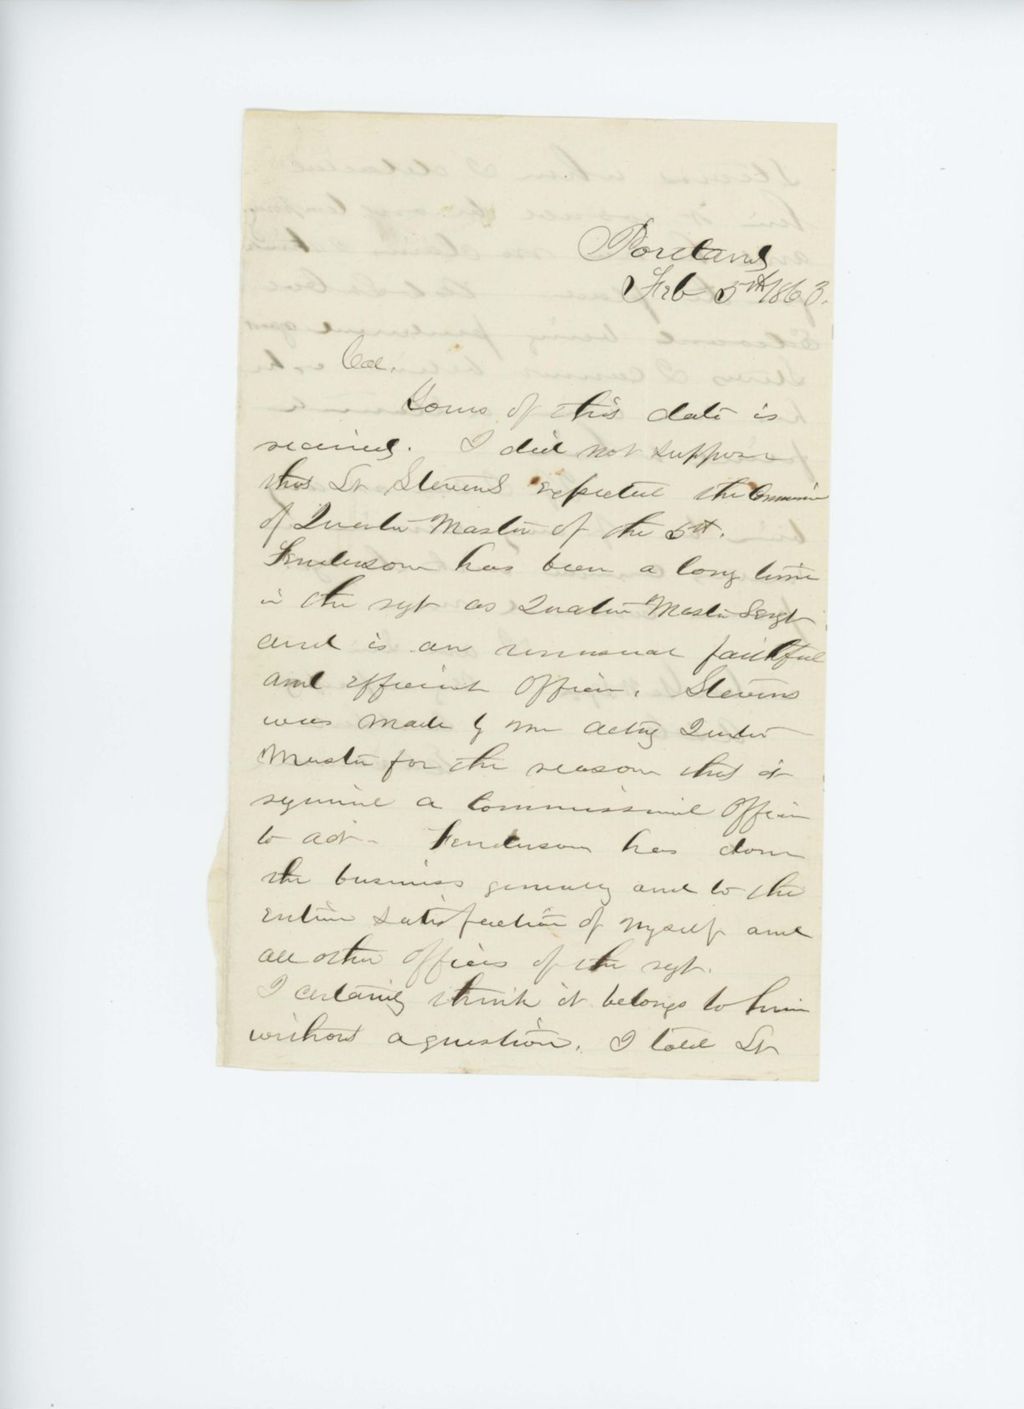 Portland
Feb 5th 1863.
Col.
Yours of this date is
received. I did not suppose
that Lt Stevens expected the Commission
of Quarter Master of the 5th.
Fenderson has been a long time
in the regt as Quarter Master Sergt
and is an unusual faithful
and efficient Officer. Stevens
was made by me acting Quarter
Master for the reason that it
required a Commissioned Officer
to act - Fenderson has done
the business generally and to the
entire satisfaction of myself and
all other officers of the regt.
I certainly think it belongs to him
without a question. I told Lt